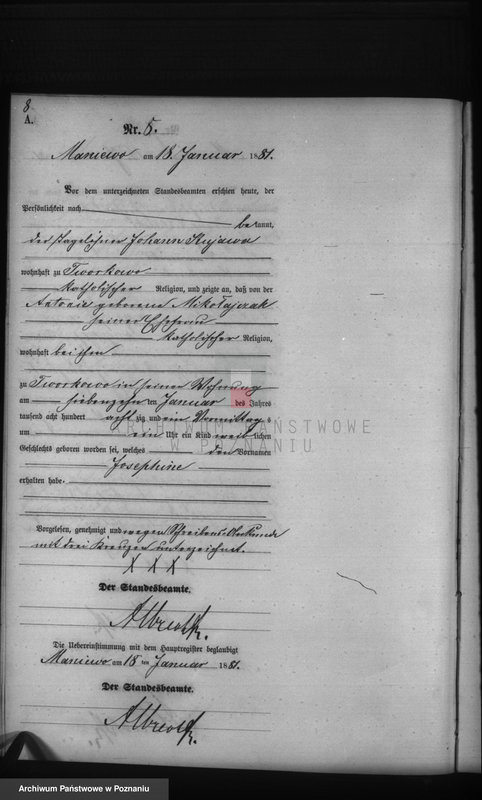 8
A.
Nr. 5.
Maniewo am 18. Januar 1881.
Vor dem unterzeichneten Standesbeamten erschien heute, der
Persönlichkeit nach
bekannt,
der Tagelöhner Johann Kujawa
wohnhaft zu Tworkowo
katholischer Religion, und zeigte an, daß von der
Antonie geborene Mikołajczak
seiner Ehefrau
katholischer Religion,
wohnhaft bei ihm
zu Tworkowo in seiner Wohnung
am siebenzehnten Januar des Jahres
tausend acht hundert achtzig und ein Vormittags
um ein Uhr ein Kind weiblichen
Geschlechts geboren worden sei, welches den Vornamen
Josephine
erhalten habe.
Vorgelesen, genehmigt und wegen Schreibens Unkunde
mit drei Kreuzen unterzeichnet.
X X X
Der Standesbeamte.
Die Uebereinstimmung mit dem Hauptregister beglaubigt
Maniewo am 18 ten Januar 1881.
Der Standesbeamte.
ARCHIWUM PAŃSTWOWE
W POZNANIU
Archiwum Państwowe w Poznaniu